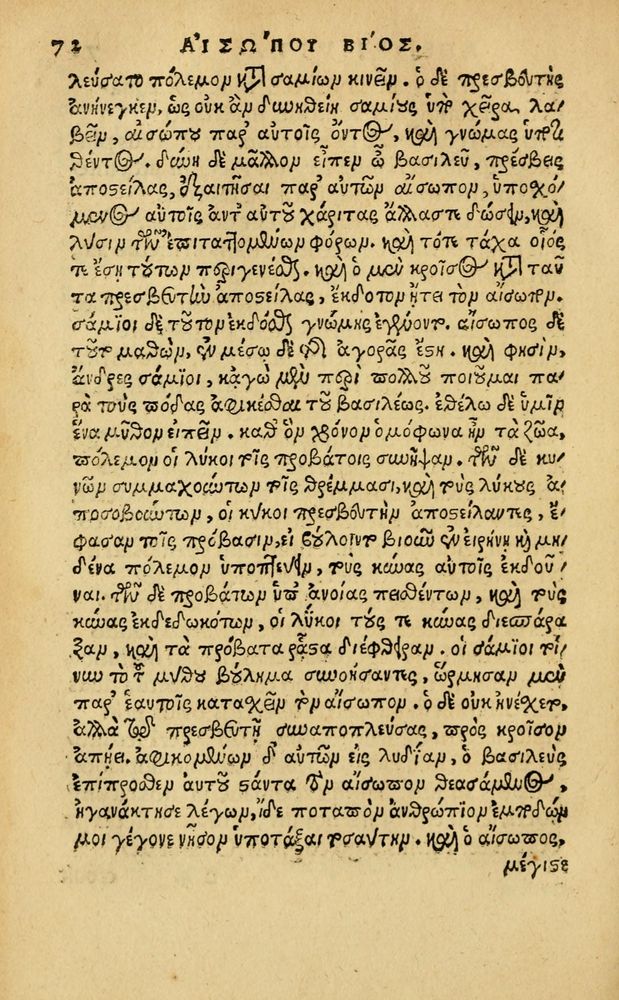 72 ΑΙΣΩΠΟΥ ΒΙΟΣ.
λεύσατο πόλεμον κατὰ σαμίων κινεῖν. ὁ δὲ πρεσβευτὴς
ἀνήνεγκεν, ὡς οὐκ ἂν δυνηθείη σαμίους ὑπὸ χεῖρα λα-
βεῖν, αἰσώπου παρ' αὐτοῖς ὄντος, καὶ γνώμας ὑποτι
θέντος. δύνῃ δὲ μᾶλλον εἶπεν ὦ βασιλεῦ, πρέσβεις
ἀποστείλας, ἐξαιτῆσαι παρ' αὐτῶν αἴσωπον, ὑποσχό-
μενος αὐτοῖς ἀντ' αὐτοῦ χάριτας ἄλλας τε δώσειν, καὶ
λύσιν τῶν ἐπιταττομένων φόρων. καὶ τότε τάχα οἷός
τε ἔσῃ τούτων περιγενέσθαι. καὶ ὁ μὲν κροῖσος κατὰ ταῦ
τα πρεσβευτὴν ἀποστείλας, ἔκδοτον ᾔτει τὸν αἴσωπον.
σάμιοι δὲ τοῦτον ἐκδόσθαι γνώμης ἐγένοντο. αἴσωπος δὲ
τοῦτο μαθὼν, ἐν μέσῳ δὲ τῆς ἀγορᾶς ἔστη. καὶ φησὶν,
ἄνδρες σάμιοι, κἀγὼ μὲν περὶ πολλοῦ ποιοῦμαι πα-
ρὰ τοὺς πόδας ἀφικέσθαι τοῦ βασιλέως. ἐθέλω δὲ ὑμῖν
ἕνα μῦθον εἰπεῖν. καθ' ὃν χρόνον ὁμόφωνα ἦν τὰ ζῶα,
πόλεμον οἱ λύκοι τοῖς προβάτοις συνῆψαν. τῶν δὲ κυ-
νῶν συμμαχούντων τοῖς θρέμμασι, καὶ τοὺς λύκους ἀ-
ποσοβούντων, οἱ λύκοι πρεσβευτὴν ἀποστείλαντες, ἔ-
φασαν τοῖς πρόβασιν, εἰ βούλοιντο βιοῦν ἐν εἰρήνῃ καὶ μη-
δένα πόλεμον ὑποπτεύειν, τοὺς κύνας αὐτοῖς ἐκδοῦ-
ναι. τῶν δὲ προβάτων ὑπ' ἀνοίας πεισθέντων, καὶ τοὺς
κύνας ἐκδεδωκότων, οἱ λύκοι τούς τε κύνας διεσπάρα
ξαν, καὶ τὰ πρόβατα ῥᾷστα διέφθειραν. οἱ σάμιοι τοί-
νυν τὸ τοῦ μύθου βούλημα συννοήσαντες, ὥρμησαν μὲν
παρ' ἑαυτοῖς κατασχεῖν τὸν αἴσωπον. ὁ δὲ οὐκ ἠνέσχετο,
ἀλλὰ τῷ πρεσβευτῇ συναποπλεύσας, πρὸς κροῖσον
ἀπῄει. ἀφικομένων δ' αὐτῶν εἰς λυδίαν, ὁ βασιλεὺς
ἐπίπροσθεν αὐτοῦ στάντα τὸν αἴσωπον θεασάμενος,
ἠγανάκτησε λέγων, ἴδε ποταπὸν ἀνθρώπιον ἐμποδών
μοι γέγονε νῆσον ὑποτάξαι τοσαύτην. καὶ ὁ αἴσωπος,
μέγιστε